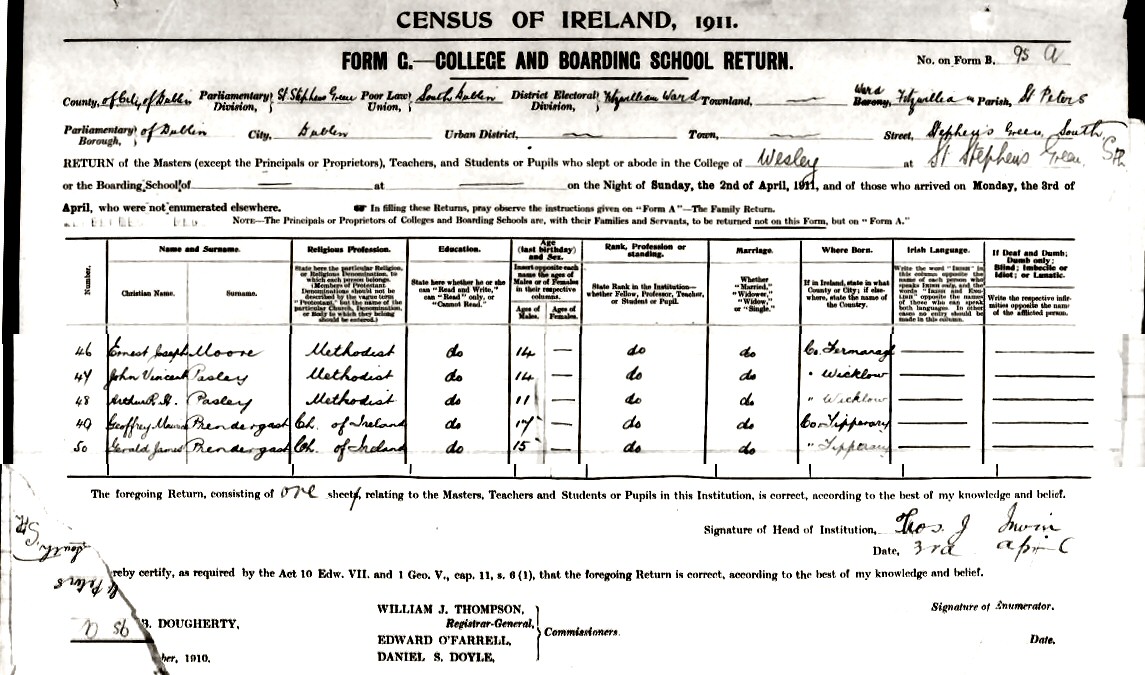 CENSUS OF IRELAND, 1911.
FORM G.—COLLEGE AND BOARDING SCHOOL RETURN.
No. on Form B. 95 A
County, of City of Dublin Parliamentary Division, St. Stephens Green Poor Law Union, South Dublin District Electoral Division, Fitzwilliam Ward Townland, — Ward Barony, Fitzwilliam Parish, St Peters
Parliamentary Borough, of Dublin City, Dublin Urban District, — Town, — Street, Stephen's Green South
RETURN of the Masters (except the Principals or Proprietors), Teachers, and Students or Pupils who slept or abode in the College of Wesley at St Stephens Green, Sth
or the Boarding School of — at — on the Night of Sunday, the 2nd of April, 1911, and of those who arrived on Monday, the 3rd of
April, who were not enumerated elsewhere. ☞ In filling these Returns, pray observe the instructions given on "Form A"—The Family Return.
NOTE—The Principals or Proprietors of Colleges and Boarding Schools are, with their Families and Servants, to be returned not on this Form, but on "Form A."
Number.
Name and Surname.
Christian Name. Surname.
Religious Profession.
State here the particular Religion, or Religious Denomination, to which each person belongs.
(Members of Protestant Denominations should not be described by the vague term "Protestant," but by the name of the particular Church, Denomination, or Body to which they belong should be entered.)
Education.
State here whether he or she can "Read and Write," can "Read" only, or "Cannot Read."
Age (last birthday) and Sex.
Insert opposite each name the ages of Males or of Females in their respective columns.
Ages of Males. Ages of Females.
Rank, Profession or standing.
State Rank in the Institution—whether Fellow, Professor, Teacher, or Student or Pupil.
Marriage.
Whether "Married," "Widower," "Widow," or "Single."
Where Born.
If in Ireland, state in what County or City; if elsewhere, state the name of the Country.
Irish Language.
Write the word "IRISH" in this column opposite the name of each person who speaks IRISH only, and the words "IRISH and ENGLISH" opposite the names of those who can speak both languages. In other cases no entry should be made in this column.
If Deaf and Dumb; Dumb only; Blind; Imbecile or Idiot; or Lunatic.
Write the respective infirmities opposite the name of the afflicted person.
46 Ernest Joseph Moore Methodist do 14 — do do Co. Fermanagh — —
47 John Vincent Pasley Methodist do 14 — do do " Wicklow — —
48 Arthur R. H. Pasley Methodist do 11 — do do " Wicklow — —
49 Geoffrey Maurice Prendergast Ch. of Ireland do 17 — do do Co. Tipperary — —
50 Gerald James Prendergast Ch. of Ireland do 15 — do do " Tipperary — —
The foregoing Return, consisting of one sheet, relating to the Masters, Teachers and Students or Pupils in this Institution, is correct, according to the best of my knowledge and belief.
Signature of Head of Institution, Thos. J Irwin
Date, 3rd April
reby certify, as required by the Act 10 Edw. VII. and 1 Geo. V., cap. 11, s. 6 (1), that the foregoing Return is correct, according to the best of my knowledge and belief.
South Sth
St Peters
95 A
B. DOUGHERTY,
ber, 1910.
WILLIAM J. THOMPSON,
Registrar-General,
EDWARD O'FARRELL,
DANIEL S. DOYLE,
Commissioners.
Signature of Enumerator.
Date.